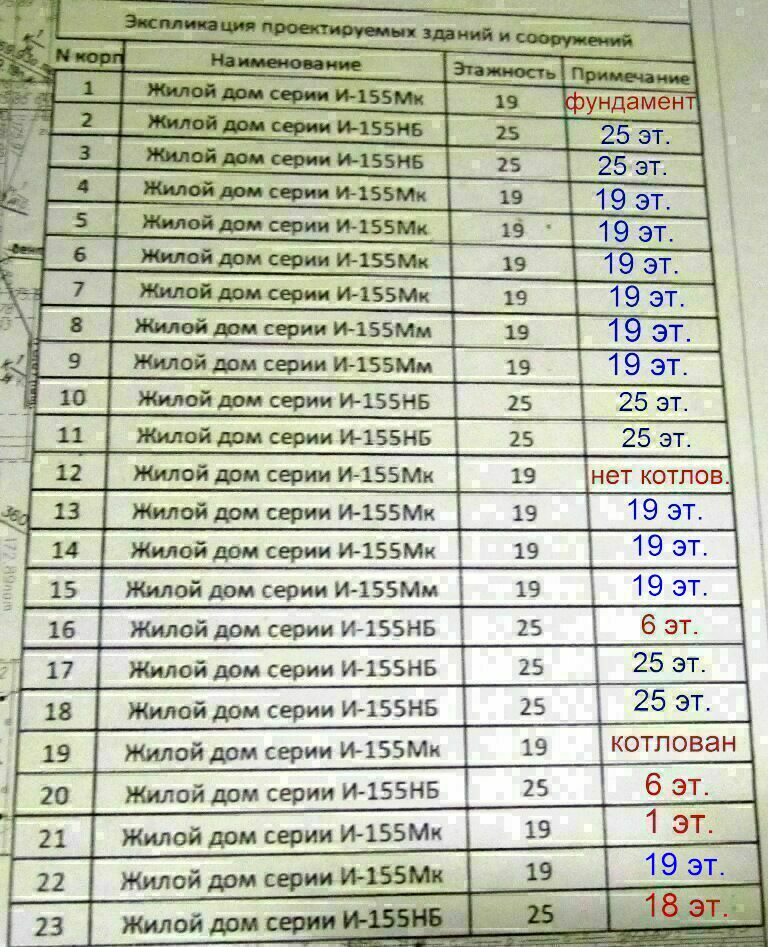 Экспликация проектируемых зданий и сооружений
N корп Наименование Этажность Примечание
1 Жилой дом серии И-155Мк 19 фундамент
2 Жилой дом серии И-155НБ 25 25 эт.
3 Жилой дом серии И-155НБ 25 25 эт.
4 Жилой дом серии И-155Мк 19 19 эт.
5 Жилой дом серии И-155Мк 19 19 эт.
6 Жилой дом серии И-155Мк 19 19 эт.
7 Жилой дом серии И-155Мк 19 19 эт.
8 Жилой дом серии И-155Мм 19 19 эт.
9 Жилой дом серии И-155Мм 19 19 эт.
10 Жилой дом серии И-155НБ 25 25 эт.
11 Жилой дом серии И-155НБ 25 25 эт.
12 Жилой дом серии И-155Мк 19 нет котлов.
13 Жилой дом серии И-155Мк 19 19 эт.
14 Жилой дом серии И-155Мк 19 19 эт.
15 Жилой дом серии И-155Мм 19 19 эт.
16 Жилой дом серии И-155НБ 25 6 эт.
17 Жилой дом серии И-155НБ 25 25 эт.
18 Жилой дом серии И-155НБ 25 25 эт.
19 Жилой дом серии И-155Мк 19 котлован
20 Жилой дом серии И-155НБ 25 6 эт.
21 Жилой дом серии И-155Мк 19 1 эт.
22 Жилой дом серии И-155Мк 19 19 эт.
23 Жилой дом серии И-155НБ 25 18 эт.
360